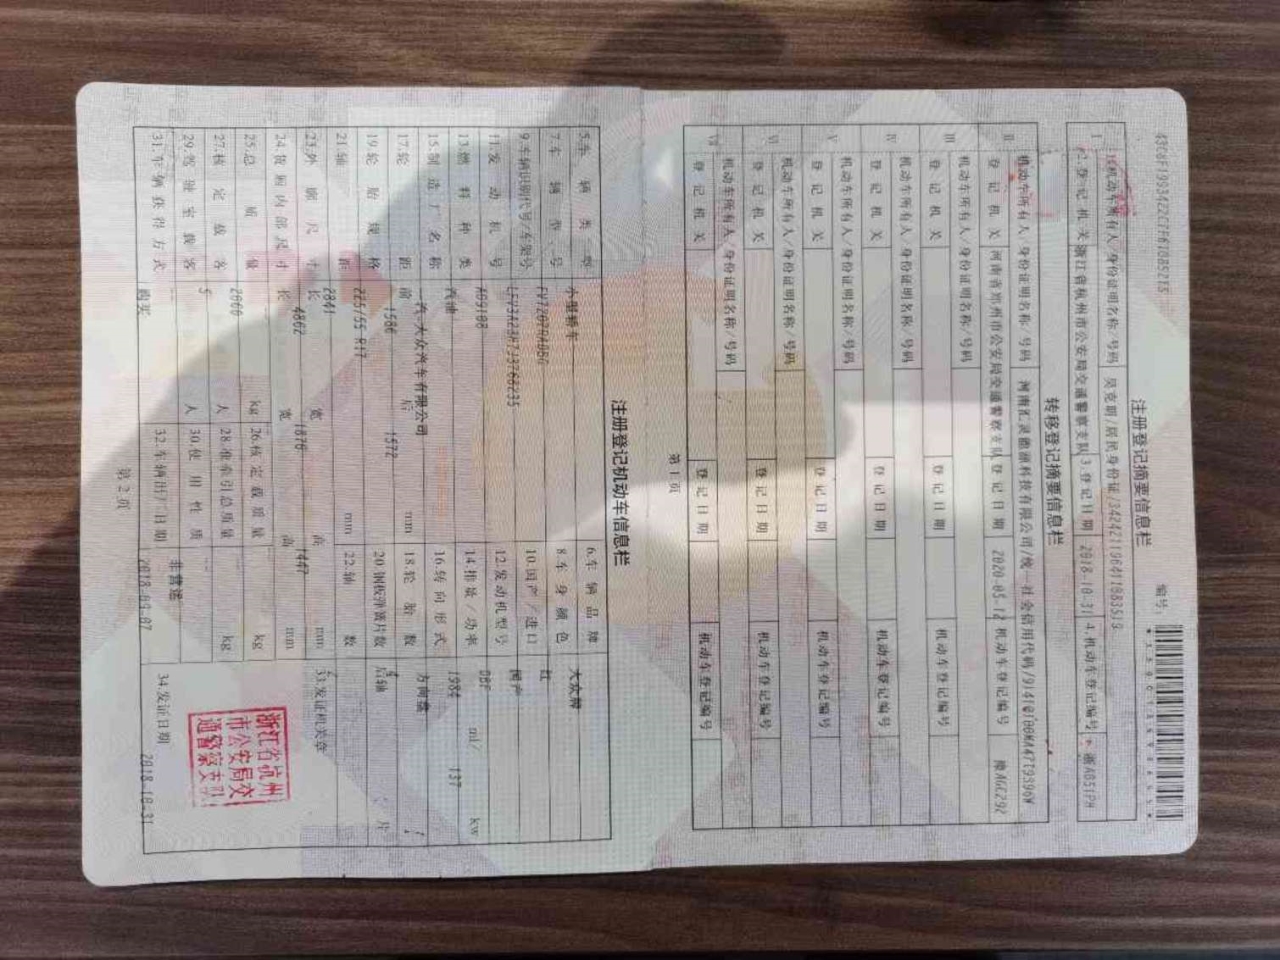 注册登记摘要信息栏
编号:
1.机动车所有人/身份证明名称/号码
2.登记机关 浙江省杭州市公安局交通警察支队 3.登记日期 2018-10-31 4.机动车登记编号 浙AB51PH
转移登记摘要信息栏
II 机动车所有人/身份证明名称/号码
登记机关 河南省郑州市公安局交通警察支队 登记日期 2020-05-12 机动车登记编号 豫AGC292
III 机动车所有人/身份证明名称/号码
登记机关 登记日期 机动车登记编号
IV 机动车所有人/身份证明名称/号码
登记机关 登记日期 机动车登记编号
V 机动车所有人/身份证明名称/号码
登记机关 登记日期 机动车登记编号
VI 机动车所有人/身份证明名称/号码
登记机关 登记日期 机动车登记编号
VII 机动车所有人/身份证明名称/号码
登记机关 登记日期 机动车登记编号
第1页
注册登记机动车信息栏
5.车辆类型 小型轿车 6.车辆品牌 大众牌
7.车辆型号 8.车身颜色 红
9.车辆识别代号/车架号 10.国产/进口 国产
11.发动机号 12.发动机型号 DBF
13.燃料种类 汽油 14.排量/功率 1984 ml/ 137 kw
15.制造厂名称 一汽-大众汽车有限公司 16.转向形式 方向盘
17.轮距 前 1586 后 1572 mm 18.轮胎数 4
19.轮胎规格 225/55 R17 20.钢板弹簧片数 后轴 片
21.轴距 2841 mm 22.轴数
23.外廓尺寸 长 4862 宽 1870 高 1447 mm
24.货厢内部尺寸 长 宽 高 mm
25.总质量 2060 kg 26.核定载质量 kg
27.核定载客 5 人 28.准牵引总质量 -- kg
29.驾驶室载客 -- 人 30.使用性质 非营运
31.车辆获得方式 购买 32.车辆出厂日期 2018-09-07
33.发证机关章
浙江省杭州
市公安局交
通警察支队
34.发证日期 2018-10-31
第2页